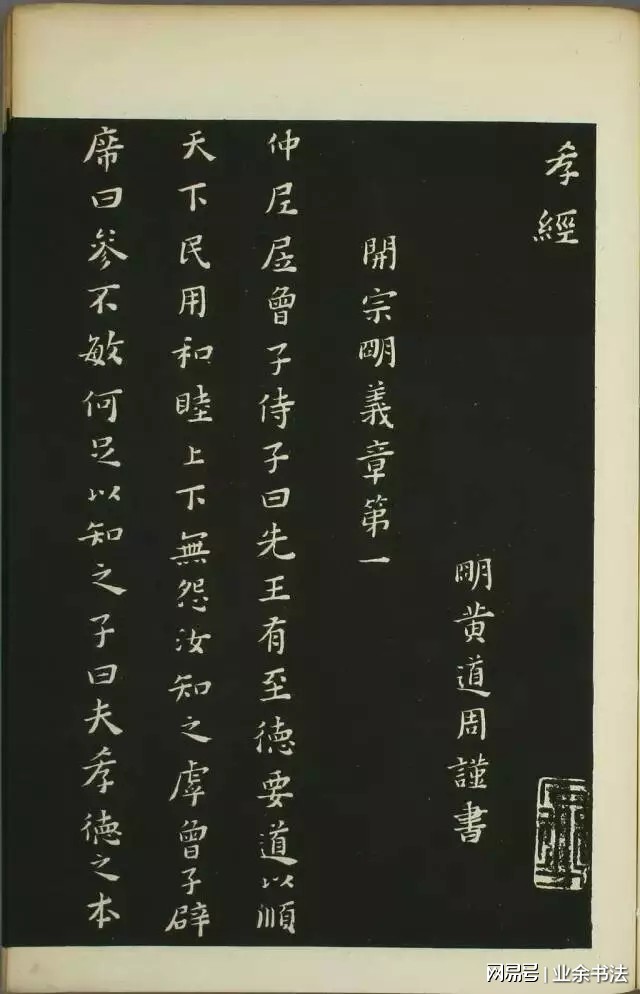 孝經
明黄道周謹書
開宗明義章第一
仲尼凥曾子侍子曰先王有至德要道以順
天下民用和睦上下無怨汝知之虖曾子辟
席曰參不敏何足以知之子曰夫孝德之本
网易号 | 业余书法